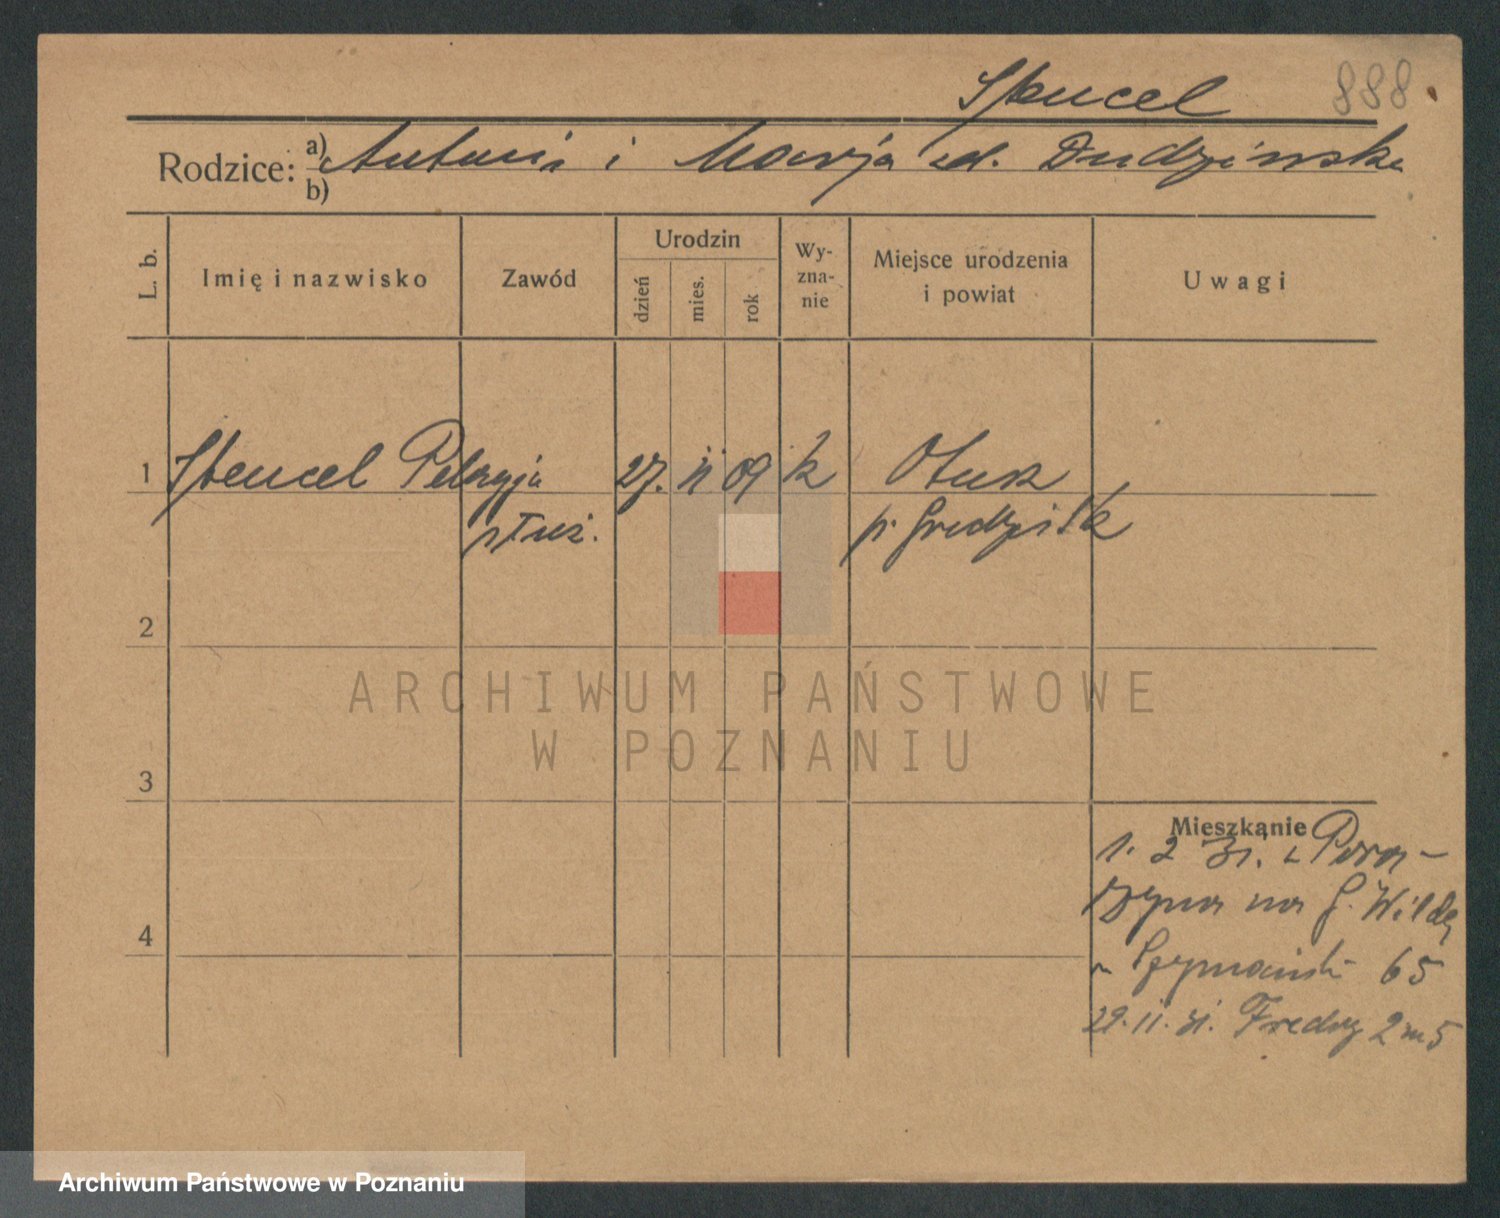 Stencel 888
Rodzice: a) Antoni i Marja zd. Dudzińska
b)
L. b. Imię i nazwisko Zawód Urodzin dzień mies. rok Wy-zna-nie Miejsce urodzenia i powiat Uwagi
1 Stencel Pelagja 27. II 09 k Otusz
służ. p. Grodzisk
2
ARCHIWUM PAŃSTWOWE
W POZNANIU
3
Mieszkanie
1. 2 31. z
na G. Wildę
Szymański 65
4
29. II. 31. Fredry 2 m 5
Archiwum Państwowe w Poznaniu